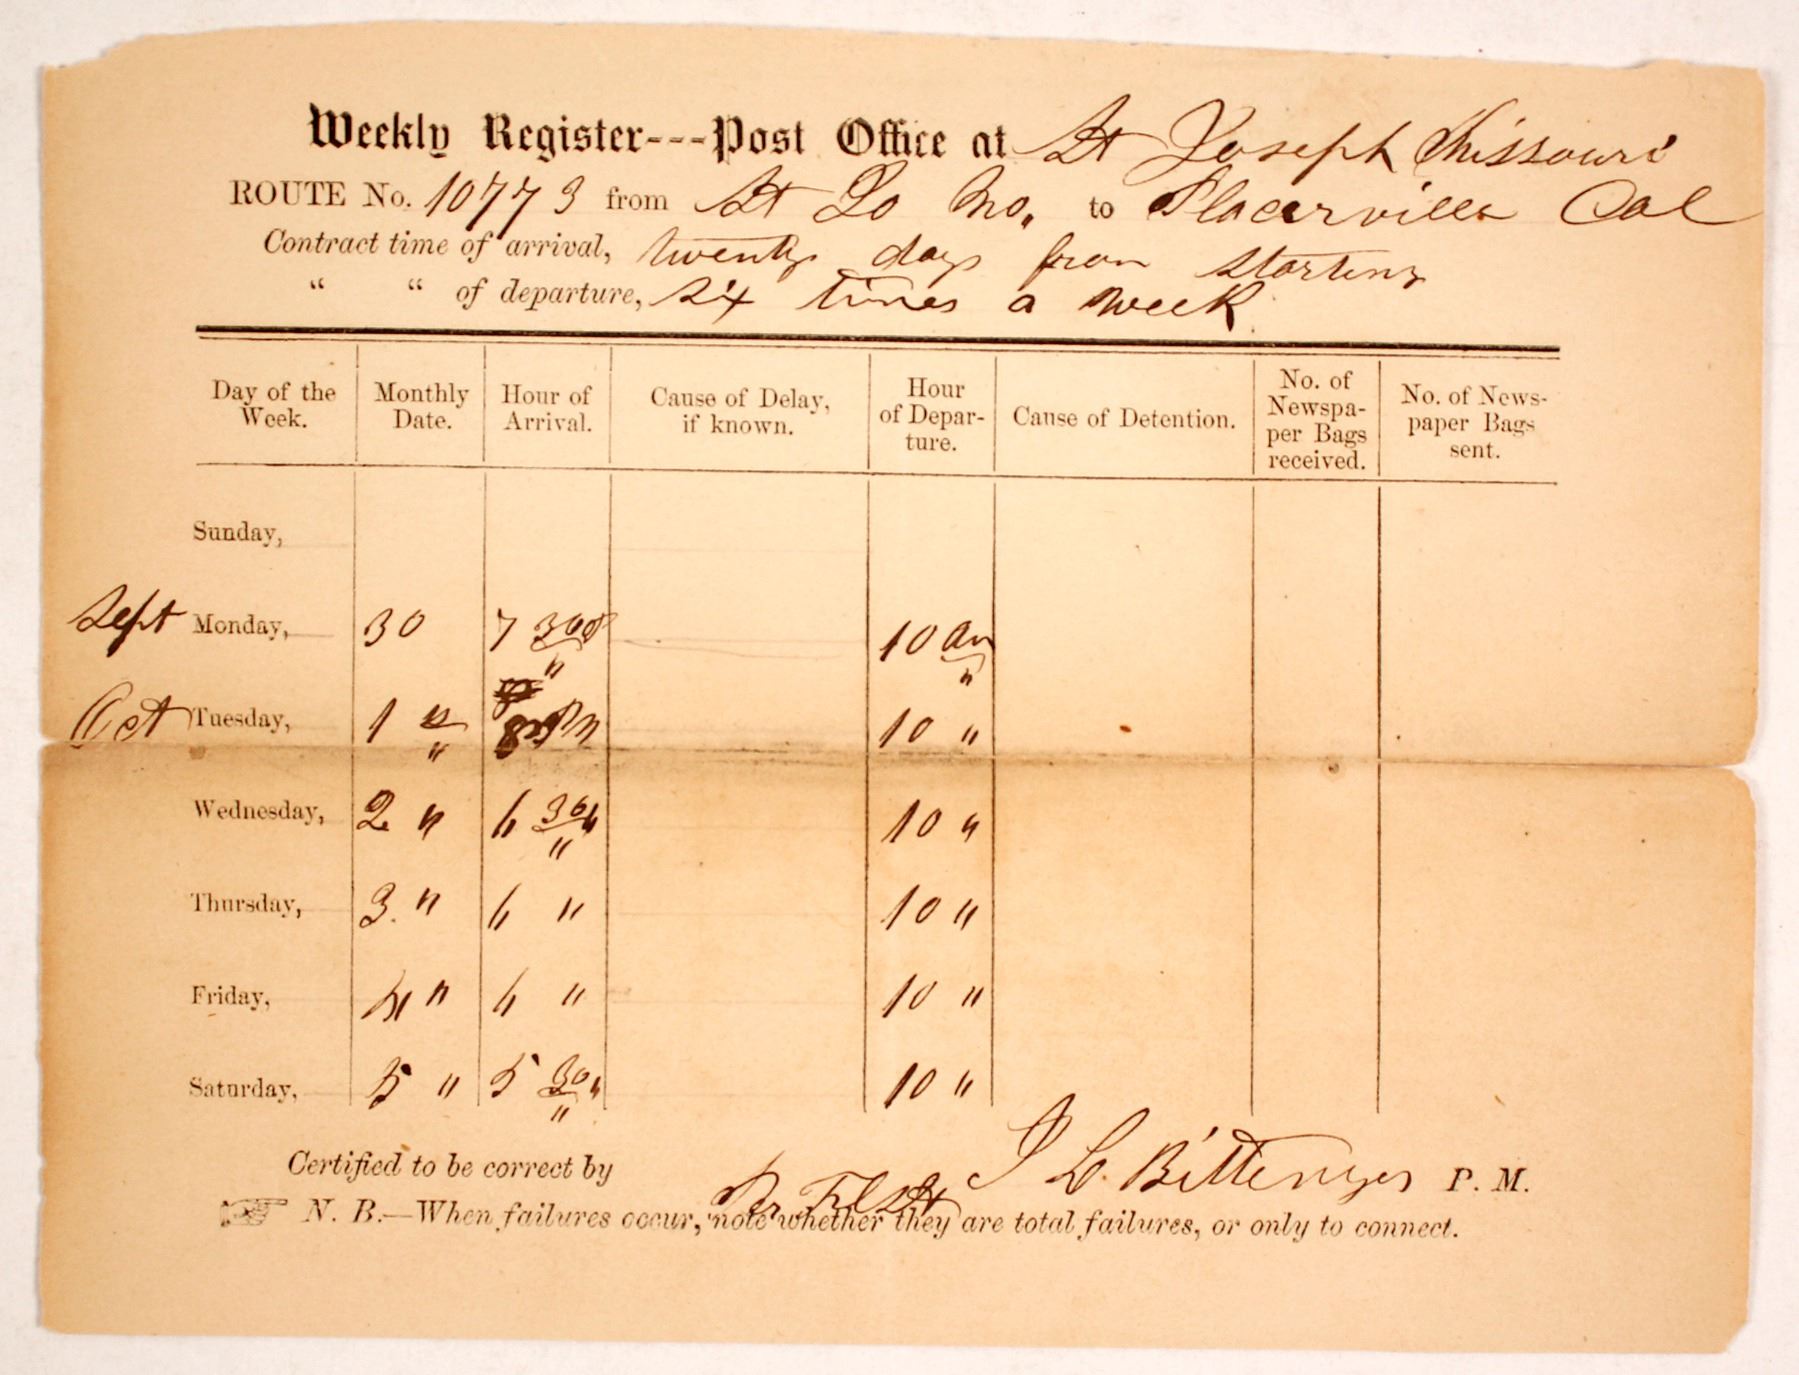 Weekly Register---Post Office at St Joseph Missouri
ROUTE No. 10773 from St Jo Mo. to Placerville Cal
Contract time of arrival, twenty days from starting
“ “ of departure, six times a week
Day of the Week. Monthly Date. Hour of Arrival. Cause of Delay, if known. Hour of Departure. Cause of Detention. No. of Newspaper Bags received. No. of Newspaper Bags sent.
Sunday,
Sept Monday, 30 7 30 10 am
Oct Tuesday, 1 " 8 Pm 10 "
Wednesday, 2 " 6 30 " 10 "
Thursday, 3. " 6 " 10 "
Friday, 4 " 6 " 10 "
Saturday, 5 " 5 30 " 10 "
Certified to be correct by J L Bittenger P. M.
N. B.—When failures occur, note whether they are total failures, or only to connect.